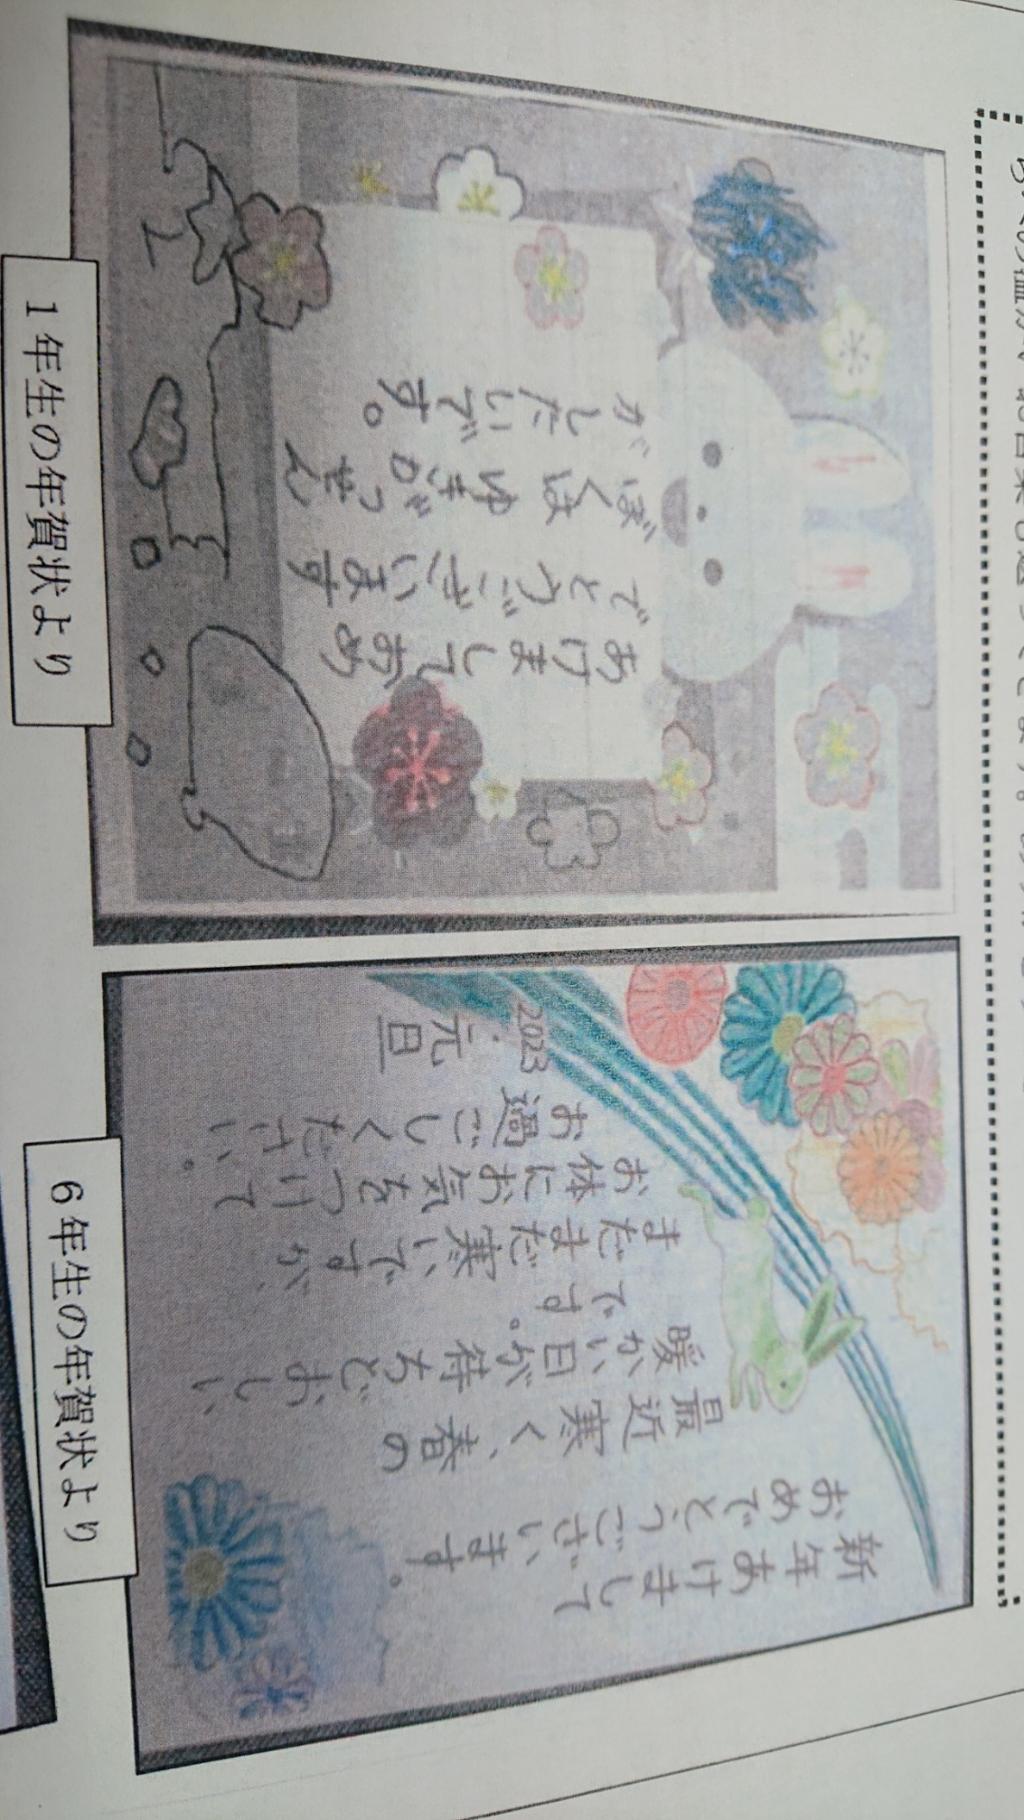 あけましておめ
でとうございます
ぼくは ゆきがっせん
がしたいです。
1年生の年賀状より
新年あけまして
おめでとうございます。
最近寒く、春の
暖かい日が待ちどおしい
です。
まだまだ寒いですが、
お体にお気をつけて
お過ごしください。
2023
元旦
6年生の年賀状より